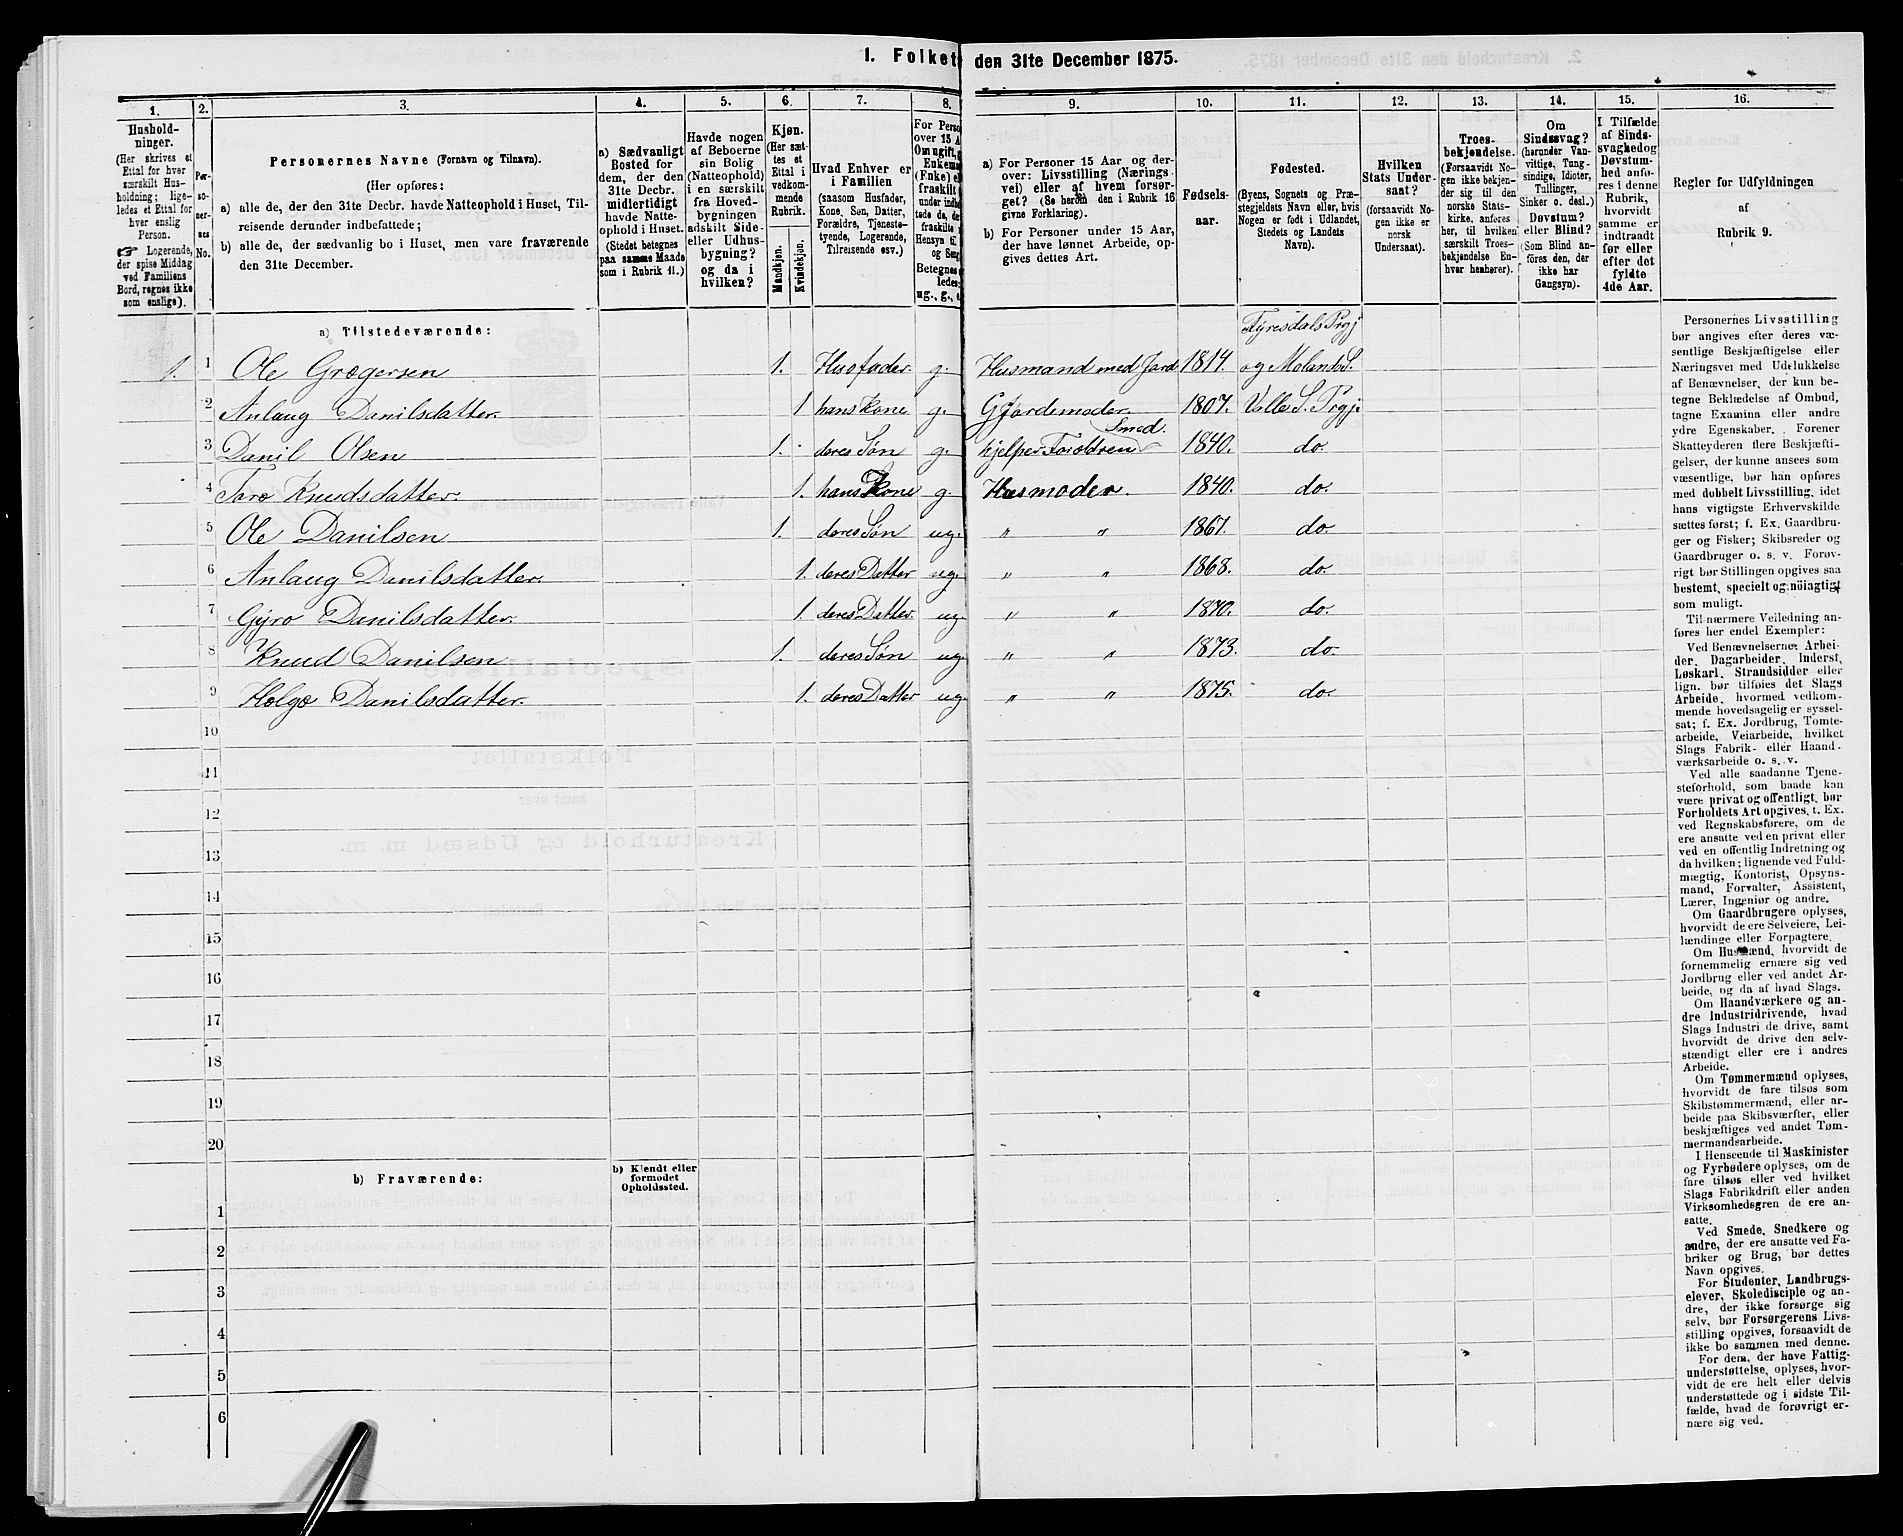 1. Folket den 31te December 1875.
1. 2. 3. 4. 5. 6. 7. 8. 9. 10. 11. 12. 13. 14. 15. 16.
Hushold-
ninger.
(Her skrives et
Ettal for hver
særskilt Hus-
holdning; lige-
ledes et Ettal for
hver enslig
Person.
☞ Logerende,
der spise Middag
ved Familiens
Bord, regnes ikke
som enslige).
Per-
so-
ner-
nes
No.
Personernes Navne (Fornavn og Tilnavn).
(Her opføres:
a) alle de, der den 31te Decbr. havde Natteophold i Huset, Til-
reisende derunder indbefattede;
b) alle de, der sædvanlig bo i Huset, men vare fraværende
den 31te December.
a) Sædvanligt
Bosted for
dem, der den
31te Decbr.
midlertidigt
havde Natte-
ophold i Huset.
(Stedet betegnes
paa samme Maade
som i Rubrik 11.)
Havde nogen
af Beboerne
sin Bolig
(Natteophold)
i en særskilt
fra Hoved-
bygningen
adskilt Side-
eller Udhus-
bygning?
og da i
hvilken?
Kjøn.
(Her sæt-
tes et
Ettal i
vedkom-
mende
Rubrik.
Mandkjøn.
Kvindekjøn.
Hvad Enhver er
i Familien
(saasom Husfader,
Kone, Søn, Datter,
Forældre, Tjeneste-
tyende, Logerende,
Tilreisende osv.)
For Perso
over 15 A
Om ugift, g
Enkema
(Enke) el
fraskilt
under indbe
tede de, de
fraskilte
Hensyn ti
og Seng
Betegnes
ledes:
ug., g., e
a) For Personer 15 Aar og der-
over: Livsstilling (Nærings-
vei) eller af hvem forsør-
get? (Se herom den i Rubrik 16
givne Forklaring).
b) For Personer under 15 Aar,
der have lønnet Arbeide, op-
gives dettes Art.
Fødsels-
aar.
Fødested.
(Byens, Sognets og Præ-
stegjeldets Navn eller, hvis
Nogen er født i Udlandet,
Stedets og Landets
Navn).
Hvilken
Stats Under-
saat?
(forsaavidt No-
gen ikke er
norsk
Undersaat).
Troes-
bekjendelse.
(Forsaavidt No-
gen ikke bekjen-
der sig til den
norske Stats-
kirke, anføres
her, til hvilken
særskilt Troes-
bekjendelse En-
hver henhører).
Om
Sindssvag?
(herunder Van-
vittige, Tung-
sindige, Idioter,
Tullinger,
Sinker o. desl.)
Døvstum?
eller Blind?
(Som Blind an-
føres den, der
ikke har
Gangsyn).
I Tilfælde
af Sinds-
svaghed og
Døvstum-
hed anfø-
res i denne
Rubrik,
hvorvidt
samme er
indtraadt
før eller
efter det
fyldte
4de Aar.
Regler for Udfyldningen
af
Rubrik 9.
a) Tilstedeværende:
Fyresdals Prgj
1. 1 Ole Grøgersen 1. Husfader g. Husmand med Jord 1814. og Molands S.
2 Anlaug Danilsdatter. 1 hans Kone g. Gjordemoder 1807. Valle S. Prgj.
Smed.
3 Danil Olsen 1. deres Søn g. hjelper Forældren 1840. do.
4 Taro Knudsdatter. 1. hans Kone g. Husmoder. 1840. do.
5 Ole Danilsen 1. deres Søn ug. " " 1867. do.
6 Anlaug Danilsdatter. 1. deres Datter ug. " " 1868. do.
7 Gyro Danilsdatter. 1. deres Datter. ug. " " 1870. do.
8 Knud Danilsen 1. deres Søn ug. " " 1873. do.
9 Helge Danilsdatter. 1. deres Datter ug. " " 1875. do.
10
11
12
13
14
15
16
17
18
19
20
b) Fraværende:
b) Kjendt eller
formodet
Opholdssted.
1
2
3
4
5
6
Personernes Livsstilling
bør angives efter deres væ-
sentlige Beskjæftigelse eller
Næringsvei med Udelukkelse
af Benævnelser, der kun be-
tegne Beklædelse af Ombud,
tagne Examina eller andre
ydre Egenskaber. Forener
Skatteyderen flere Beskjæfti-
gelser, der kunne ansees som
væsentlige, bør han opføres
med dobbelt Livsstilling, idet
hans vigtigste Erhvervskilde
sættes først; f. Ex. Gaardbru-
ger og Fisker; Skibsreder og
Gaardbruger o. s. v. Forøv-
rigt bør Stillingen opgives saa
bestemt, specielt og nöiagtigt
som muligt.
Til nærmere Veiledning an-
føres her endel Exempler:
Ved Benævnelserne: Arbei-
der, Dagarbeider, Inderst,
Løskarl, Strandsidder eller
lign. bør tilføies det Slags
Arbeide, hvormed vedkom-
mende hovedsagelig er syssel-
sat; f. Ex. Jordbrug, Tomte-
arbeide, Veiarbeide, hvilket
Slags Fabrik- eller Haand-
værksarbeide o. s. v.
Ved alle saadanne Tjene-
steforhold, som baade kan
være privat og offentligt, bør
Forholdets Art opgives, t. Ex.
ved Regnskabsførere, om de
ere ansatte ved en privat eller
ved en offentlig Indretning og
da hvilken; lignende ved Fuld-
mægtig, Kontorist, Opsyns-
mand, Forvalter, Assistent,
Lærer, Ingeniør og andre.
Om Gaardbrugere oplyses,
hvorvidt de ere Selveiere, Lei-
lændinge eller Forpagtere.
Om Husmænd, hvorvidt de
fornemmelig ernære sig ved
Jordbrug eller ved andet Ar-
beide, og da af hvad Slags.
Om Haandværkere og an-
dre Industridrivende, hvad
Slags Industri de drive, samt
hvorvidt de drive den selv-
stændigt eller ere i andres
Arbeide.
Om Tømmermænd oplyses,
hvorvidt de fare tilsøs som
Skibstømmermænd, eller ar-
beide paa Skibsværfter, eller
beskjæftiges ved andet Tøm-
mermandsarbeide.
I Henseende til Maskinister
og Fyrbødere oplyses, om de
fare tilsøs eller ved hvilket
Slags Fabrikdrift eller anden
Virksomhedsgren de ere an-
satte.
Ved Smede, Snedkere og
andre, der ere ansatte ved Fa-
briker og Brug, bør dettes
Navn opgives.
For Studenter, Landbrugs-
elever, Skoledisciple og an-
dre, der ikke forsørge sig
selv, bør Forsørgerens Livs-
stilling opgives, forsaavidt de
ikke bo sammen med denne.
For dem, der have Fattig-
understøttelse, oplyses, hvor-
vidt de ere helt eller delvis
understøttede og i sidste Til-
fælde, hvad de forøvrigt er-
nære sig ved.